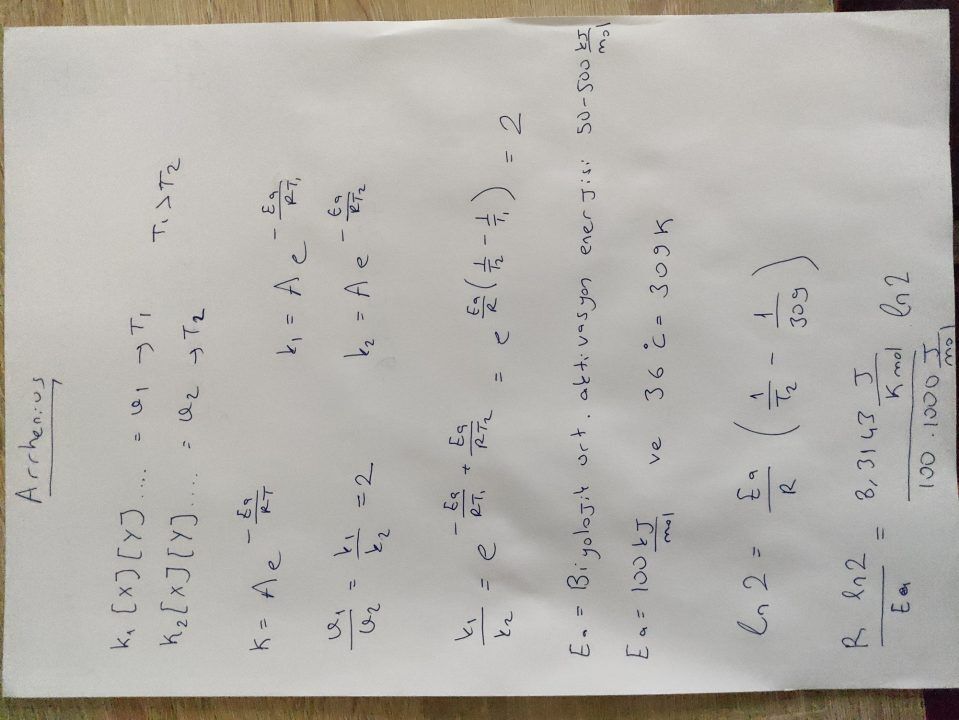 Arrhenius
k₁ [X][Y]..... = ϑ₁ → T₁
k₂ [X][Y]..... = ϑ₂ → T₂ T₁ > T₂
K = A e^(-Ea/RT) k₁ = A e^(-Ea/RT₁)
ϑ₁/ϑ₂ = k₁/k₂ = 2 k₂ = A e^(-Ea/RT₂)
k₁/k₂ = e^(-Ea/RT₁ + Ea/RT₂) = e^(Ea/R (1/T₂ - 1/T₁)) = 2
Ea = Biyolojik ort. aktivasyon enerjisi 50-500 kJ/mol
Ea = 100 kJ/mol ve 36 °C = 309 K
ln 2 = Ea/R (1/T₂ - 1/309)
R ln2 / Ea = 8,3143 J/K mol / 100.1000 J/mol ln2